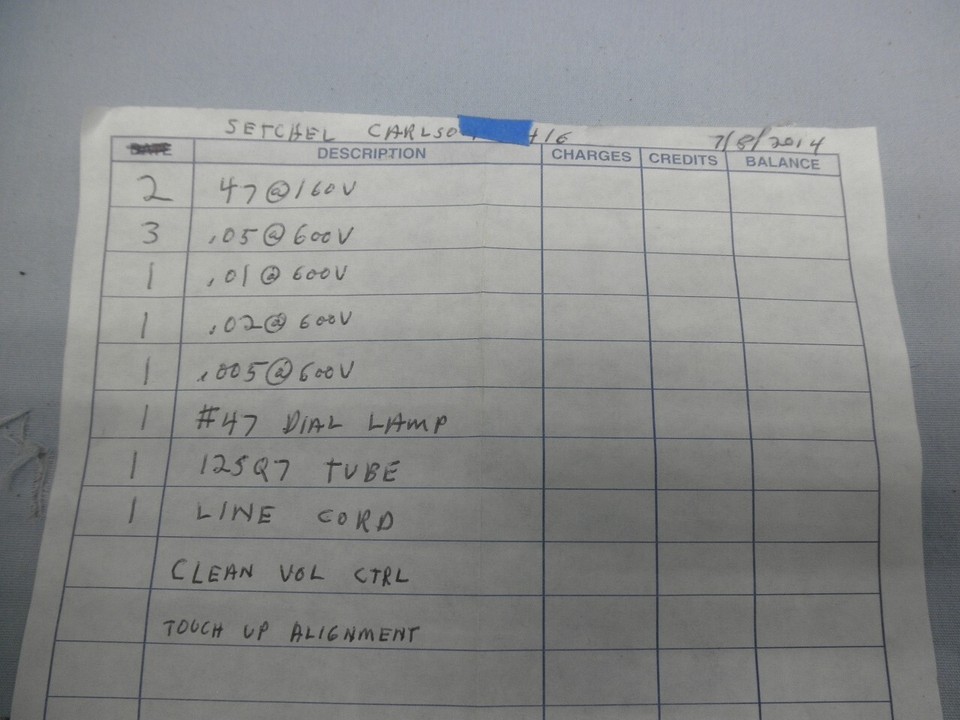 SETCHEL CARLSO 7/8/2014
DATE DESCRIPTION CHARGES CREDITS BALANCE
2 47@160V
3 .05@600V
1 .01@600V
1 .02@600V
1 .005@600V
1 #47 DIAL LAMP
1 12SQ7 TUBE
1 LINE CORD
CLEAN VOL CTRL
TOUCH UP ALIGNMENT